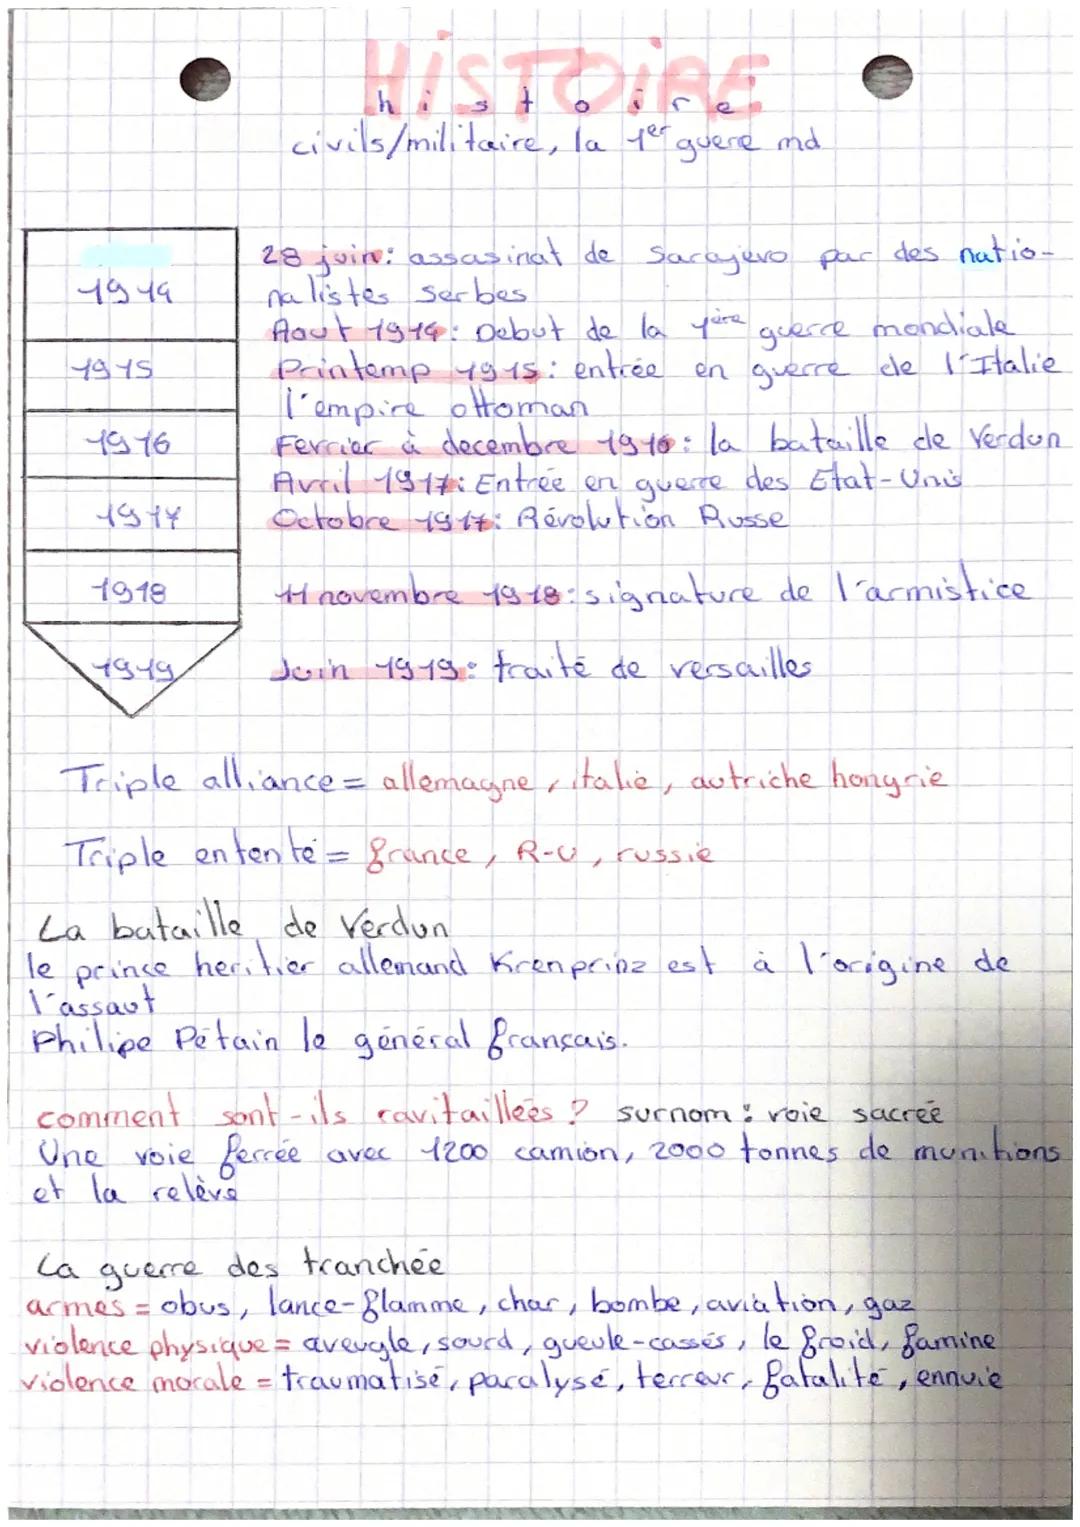 HISTOIRE
histoire
civils/militaire, la 1er guere md
1914
28 juin: assasinat de Sarajevo par des natio-
nalistes serbes
Aout 1914: Debut de la 1ère guerre mondiale
1915
Printemp 1915: entrée en guerre de l'Italie
l'empire ottoman
1916
Fevrier à decembre 1916: la bataille de Verdun
Avril 1917: Entrée en guerre des Etat-Unis
1917
Octobre 1917: Révolution Russe
1918
11 novembre 1918: signature de l'armistice
1919
Juin 1919: traité de versailles
Triple alliance = allemagne, italie, autriche hongrie
Triple entente = france, R-U, russie
La bataille de Verdun
le prince heritier allemand Krenprinz est à l'origine de
l'assaut
Philipe Pétain le général français.
comment sont-ils ravitaillées ? surnom : voie sacrée
Une voie ferrée avec 1200 camion, 2000 tonnes de munitions
et la relève
La guerre des tranchée
armes = obus, lance-flamme, char, bombe, aviation, gaz
violence physique = aveugle, sourd, gueule-cassés, le froid, famine
violence morale = traumatisé, paralysé, terreur, fatalité, ennuie